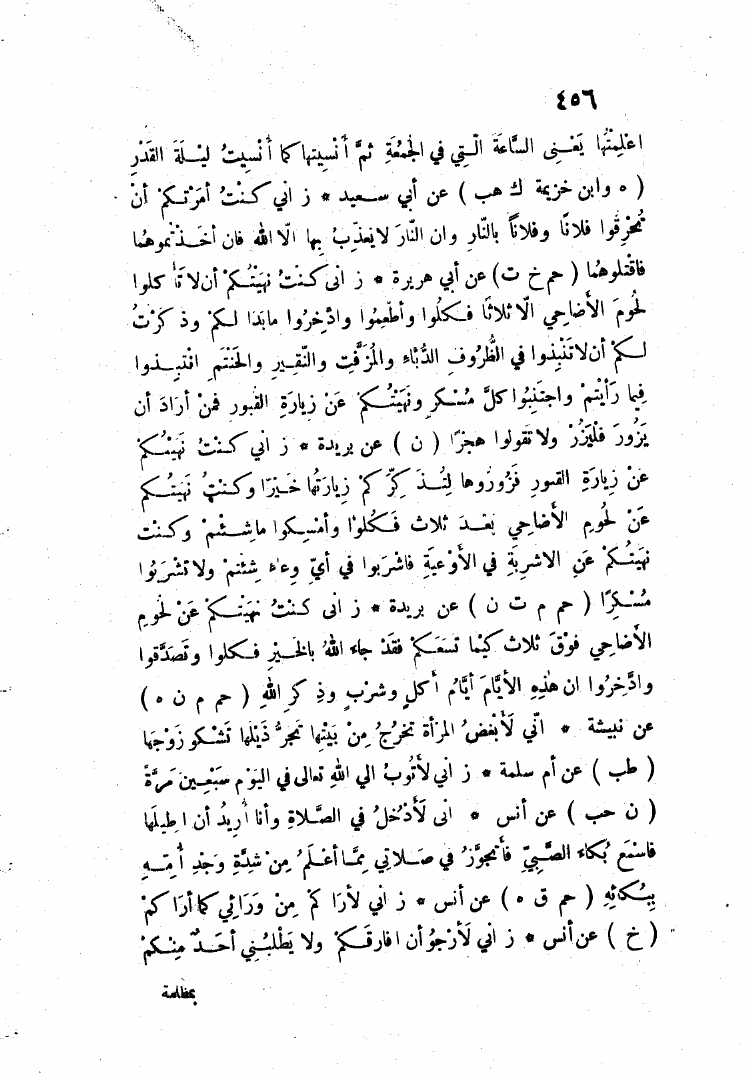 ٤٥٦
اعْلِمْتُها يَعْنِى السَّاعَةَ الَّتِي فِي الجُمُعَةِ ثُمَّ أُنْسِيتها كما أُنْسِيتُ لَيْلَةَ القَدْرِ
( ه وابن خزيمة ك هب ) عن أبي سعيد * ز اني كنْتُ أمَرْتكمْ أنْ
تُحْرِقُوا فلانًا وفلاناً بالنَّارِ وان النَّارَ لا يعذِّبُ بِها الَّا الله فان أخَذْتموهما
فاقْتلوهُما ( حم خ ت ) عن أبي هريرة * ز انى كنتُ نهَيْتُكمْ أن لا تَأكلوا
لُحُومَ الأَضاحِي الَّا ثلاثًا فكلُوا وأَطْعِمُوا وادَّخِرُوا ما بَدَا لكمْ وذكَرْتُ
لكمْ أن لا تَنْبِذوا في الظُّرُوفِ الدُّبَّاءِ والمُزَفَّتِ والنَّقِيرِ والحَنْتَمِ انْتَبِذوا
فِيما رَأَيْتمْ واجتَنِبُوا كلَّ مُسْكرٍ ونَهَيْتُكمْ عَنْ زيارَةِ القُبور فمَنْ أرَادَ أن
يَزُورَ فَلْيَزُرْ ولا تقولوا هجْرًا ( ن ) عن بريدة * ز اني كنتُ نَهَيْتُكمْ
عَنْ زِيارَةِ القبورِ فَزُورُوها لِتُذَكِّرَكمْ زِيارَتُها خَيْرًا وكنتُ نَهَيْتُكم
عَنْ لحُومِ الأَضاحِي بعْدَ ثلاث فَكُلُوا وأَمْسِكوا ما شِئْتمْ وكنت
نَهَيْتُكمْ عَنِ الاشرِبَةِ في الأَوْعيَةِ فاشْرَبوا في أيّ وِعاءٍ شِئْتمْ ولا تَشْرَبُوا
مُسْكِرًا ( حم م ت ن ) عن بريدة * ز انى كنتُ نهَيْتكمْ عَنْ لحُومِ
الأَضاحِي فوْقَ ثلاث كَيْما تسَعَكمْ فقَدْ جاء اللهُ بالخَيْرِ فكلوا وتَصَدَّقوا
وادَّخِرُوا ان هٰذِهِ الأَيَّامَ أيَّامُ أكْلٍ وشرْبٍ وذِكرِ اللهِ ( حم م ن ه )
عن نبيشة * انّي لَأبْغضُ المَرْأةَ تخرُجُ مِنْ بَيْتِها تَجرُّ ذَيْلَها تَشْكو زَوْجَها
( طب ) عن أم سلمة * ز اني لأتُوبُ الي اللهِ تعالى في اليَوْمِ سَبْعِين مَرَّةً
( ن حب ) عن أنس * انى لَأدْخُلُ في الصَّلاةِ وأنا أُرِيدُ أن اطِيلَها
فاسْمَع بُكاءَ الصَّبِيِّ فأتَجوَّزُ في صَلاتِي مِمَّا أعْلَمُ مِنْ شِدَّةِ وَجْدِ أُمِّهِ
بِبُكائِهِ ( حم ق ه ) عن أنس * ز اني لأرَاكمْ مِنْ وَرَائِي كما أرَاكمْ
( خ ) عن أنس * ز اني لَأرْجُو أن افارِقَكمْ ولا يَطْلبُنِي أحَدٌ مِنكمْ
بمظلمة